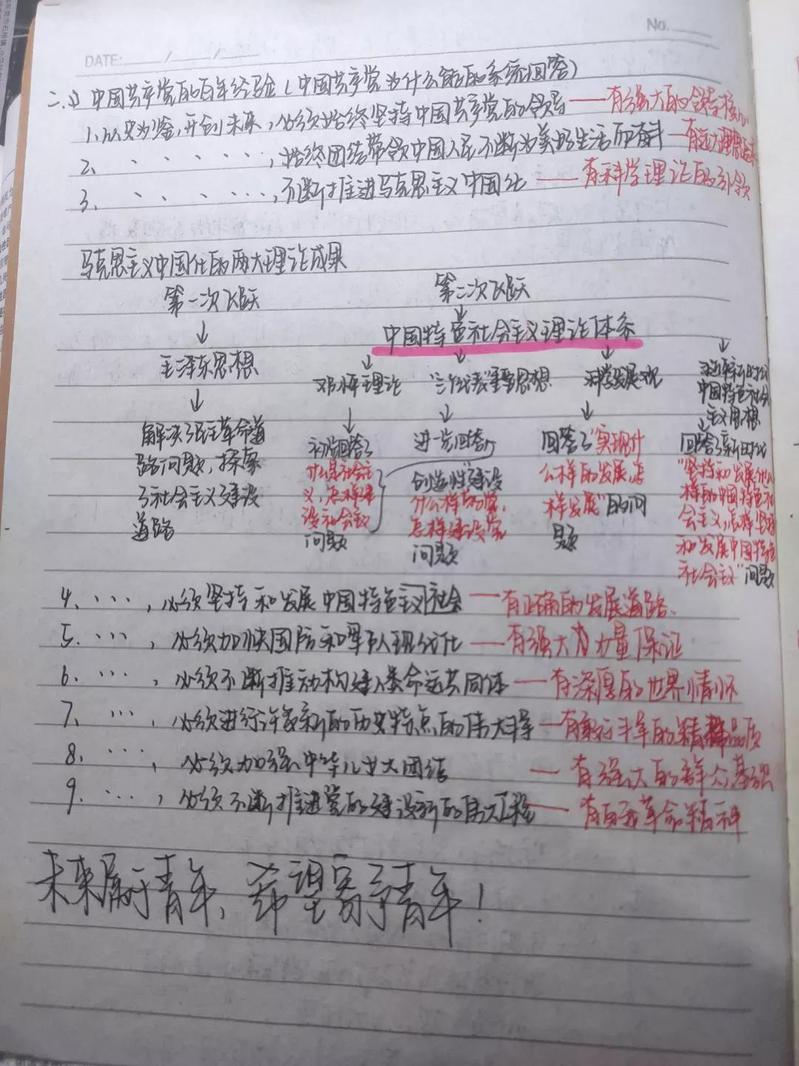 No.
DATE: / /
二、1) 中国共产党的百年经验(中国共产党为什么能的系统回答)
1、以史为鉴,开创未来,必须始终坚持中国共产党的领导——有强大的领导核心
2、、、、、、,始终团结带领中国人民不断为美好生活而奋斗—有远大理想
3、、、、、、,不断推进马克思主义中国化——有科学理论的引领
马克思主义中国化的两大理论成果
第一次飞跃 第二次飞跃
中国特色社会主义理论体系
毛泽东思想
邓小平理论 "三个代表"重要思想 科学发展观 习近平新时代中国特色社会主义思想
解决了民主革命道路问题,探索了社会主义建设道路
初步回答了什么是社会主义,怎样建设社会主义问题
进一步回答,创造性建设什么样的党,怎样建设党问题
回答了"实现什么样的发展,怎样发展"的问题
回答了新时代"坚持和发展什么样的中国特色社会主义,怎样坚持和发展中国特色社会主义"问题
4、···,必须坚持和发展中国特色主义社会—有正确的发展道路、
5、···,必须加快国防和军队现代化—有强大力量保证
6、···,必须不断推动构建人类命运共同体—有深厚的世界情怀
7、···,必须进行许多新的历史特点的伟大斗争—有勇于斗争的精神品质
8、···,必须加强中华儿女大团结 —有强大的群众基础
9、···,必须不断推进党的建设新的伟大工程—有自我革命精神
未来属于青年,希望寄予青年!